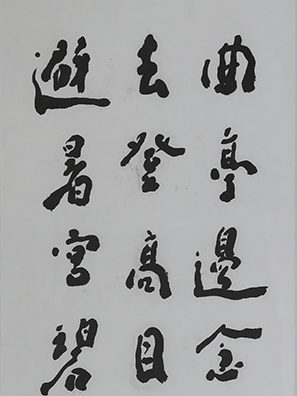 曲亭邊念
去登高目
避暑宮碧